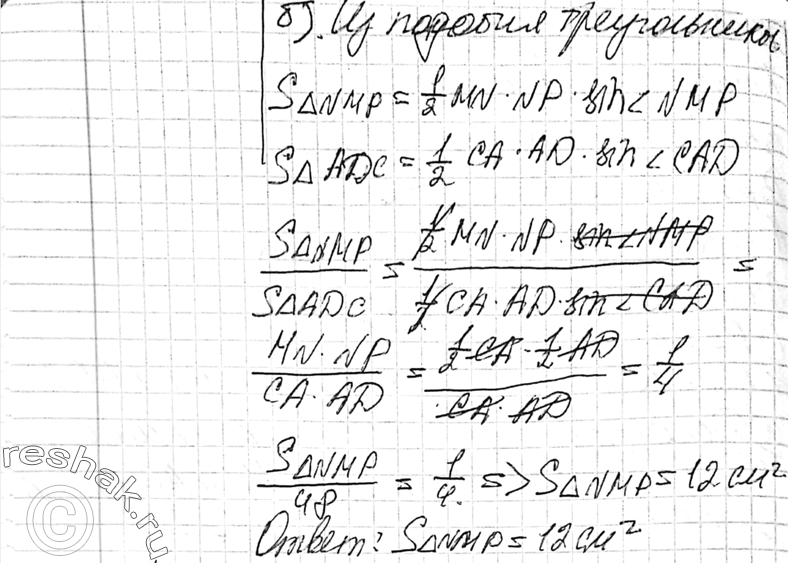 б). Из подобия треугольников
S△NMP = 1/2 MN · NP · sin < NMP
S△ADC = 1/2 CA · AD · sin < CAD
S△NMP / S△ADC = 1/2 MN · NP · sin < NMP / 1/2 CA · AD · sin < CAD =
MN · NP / CA · AD = 1/2 CA · 1/2 AD / CA · AD = 1/4
S△NMP / 48 = 1/4 => S△NMP = 12 см²
Ответ: S△NMP = 12 см²
reshak.ru
©